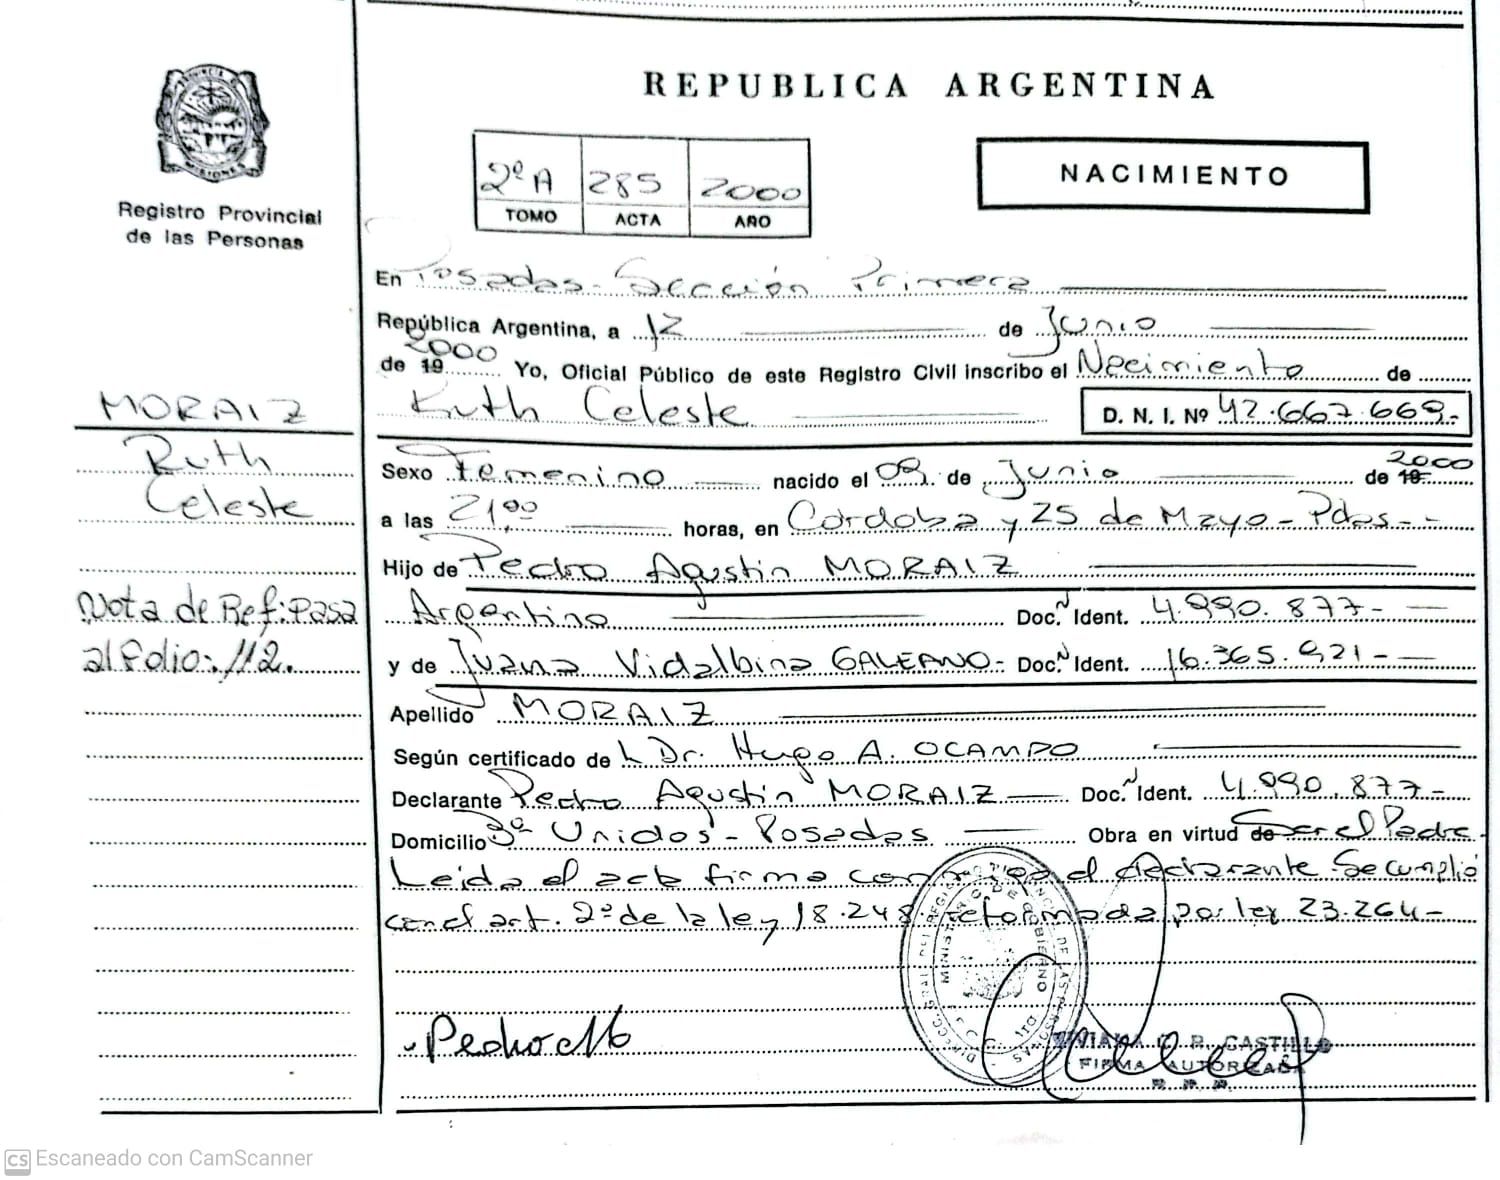 REPUBLICA ARGENTINA
PROVINCIA DE
MISIONES
Registro Provincial
de las Personas
2º A 285 2000
TOMO ACTA AÑO
NACIMIENTO
En Posadas - Sección Primera
República Argentina, a 12 de Junio
de 19 2000 Yo, Oficial Público de este Registro Civil inscribo el Nacimiento de
Ruth Celeste D. N. I. Nº 42.667.669.-
MORAIZ
Ruth
Celeste
Sexo Femenino nacido el 09. de Junio de 19 2000
a las 21,00 horas, en Córdoba y 25 de Mayo - Pdas - -
Hijo de Pedro Agustín MORAIZ
Argentino Doc. Ident. 4.990.877-
y de Juana Vidalbina GALEANO - Doc. Ident. 16.365.921-
Nota de Ref: Pasa
al folio: 112.
Apellido MORAIZ
Según certificado de L Dr. Hugo A. OCAMPO
Declarante Pedro Agustín MORAIZ Doc. Ident. 4.990.877-
Domicilio 3º Unidos - Posadas Obra en virtud de Ser el Padre.
Leida el acta firma conmigo el declarante. Se cumplió
con el art. 2º de la ley 18.248 reformada por ley 23.264-
MINISTERIO DE GOBIERNO
Pedro M
CASTILLO
FIRMA AUTORIZADA
R. P. P.
CS Escaneado con CamScanner